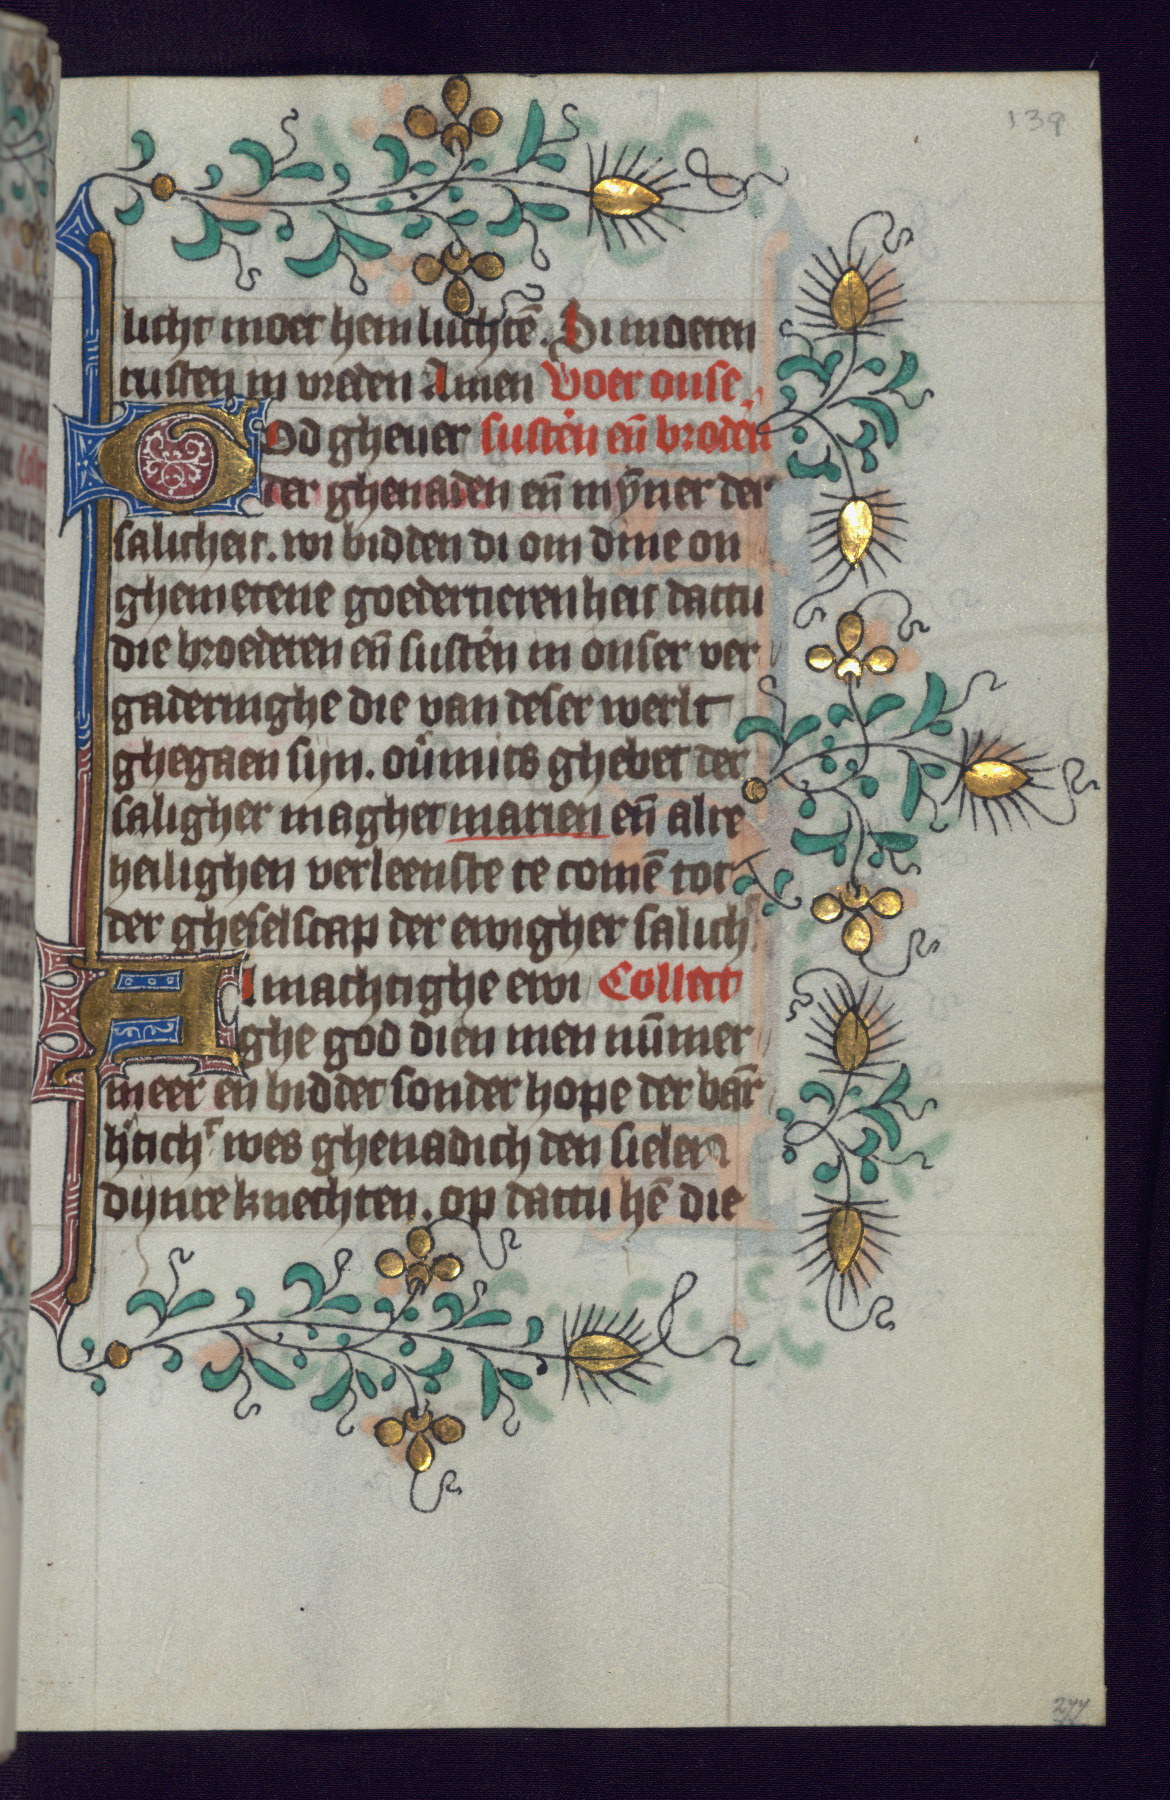 139
licht moet hem luchtē. Si moeten
rusten in vreden Amen Voer onse
God gheuer sustēn eñ brodeñ
der ghenaden eñ mÿner der
salicheit. wi bidden di om dine on
ghemetene goedertierenheit dattu
die broederen eñ sustēn in onser ver
gaderinghe die van deser werlt
ghegaen sijn. oūmits ghebet der
saligher maghet marien eñ alre
heilighen verleenste te comē tot
der gheselscap der ewigher salich
Almachtighe ewi Collect
ghe god dien men nūmer
meer en biddet sonder hope der bar
h̄tich wes ghenadich den sielen
dijnre knechten. op dattu hē die
277